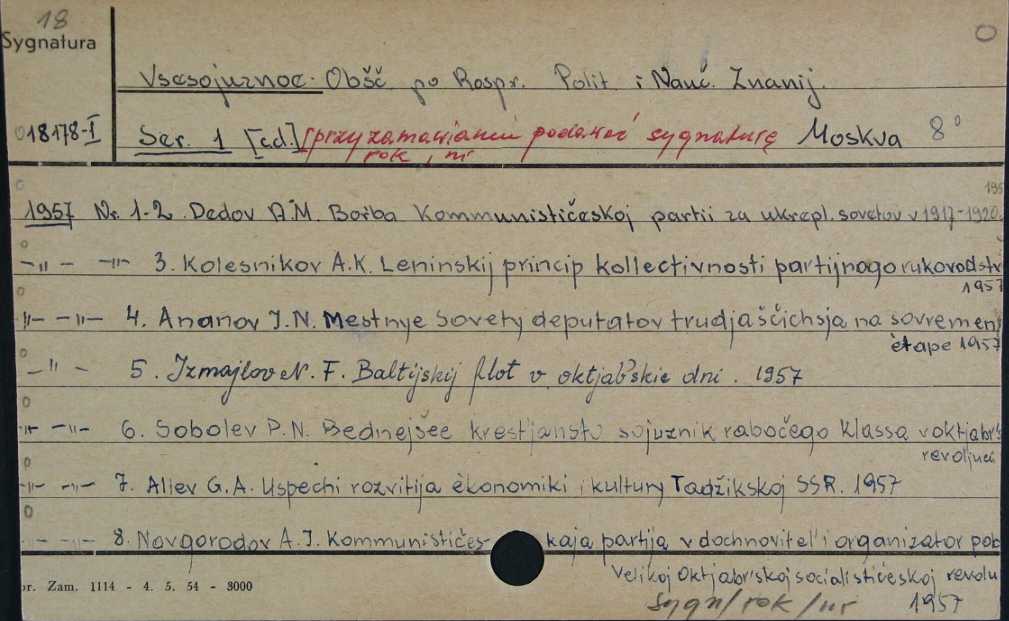 18
Sygnatura
Vsesojuznoe Obšč. po Rospr. Polit. i Nauč. Znanij.
18178-I Ser. 1 [c.d.] [przy zamawianiu podawać sygnaturę Moskva 8°
rok, nr
195
1957 Nr. 1-2. Dedov A.M. Bor'ba Kommunističeskoj partii za ukrepl. sovetov v 1917-1920.
-"- -"- 3. Kolesnikov A.K. Leninskij princip kollectivnosti partijnogo rukovodstv
1957
-"- -"- 4. Ananov J.N. Mestnye Sovety deputatov trudjaščichsja na sovremen
ètape 1957
-"- 5. Izmajlov N.F. Baltijskij flot v oktjabŕskie dni. 1957
-"- -"- 6. Sobolev P.N. Bednejšee krestjanstv sojuznik rabočego klassa v oktjabr's
revoljuci
-"- -"- 7. Aliev G.A. Uspechi rozvitija èkonomiki i kultury Tadžikskoj SSR. 1957
-"- -"- 8. Novgorodov A.I. Kommunističes- kaja partija vdochnovitel' i organizator pob
Velikoj Oktjabr'skoj socialističeskoj revolu
1957
sygn/rok/nr
or. Zam. 1114 - 4. 5. 54 - 3000